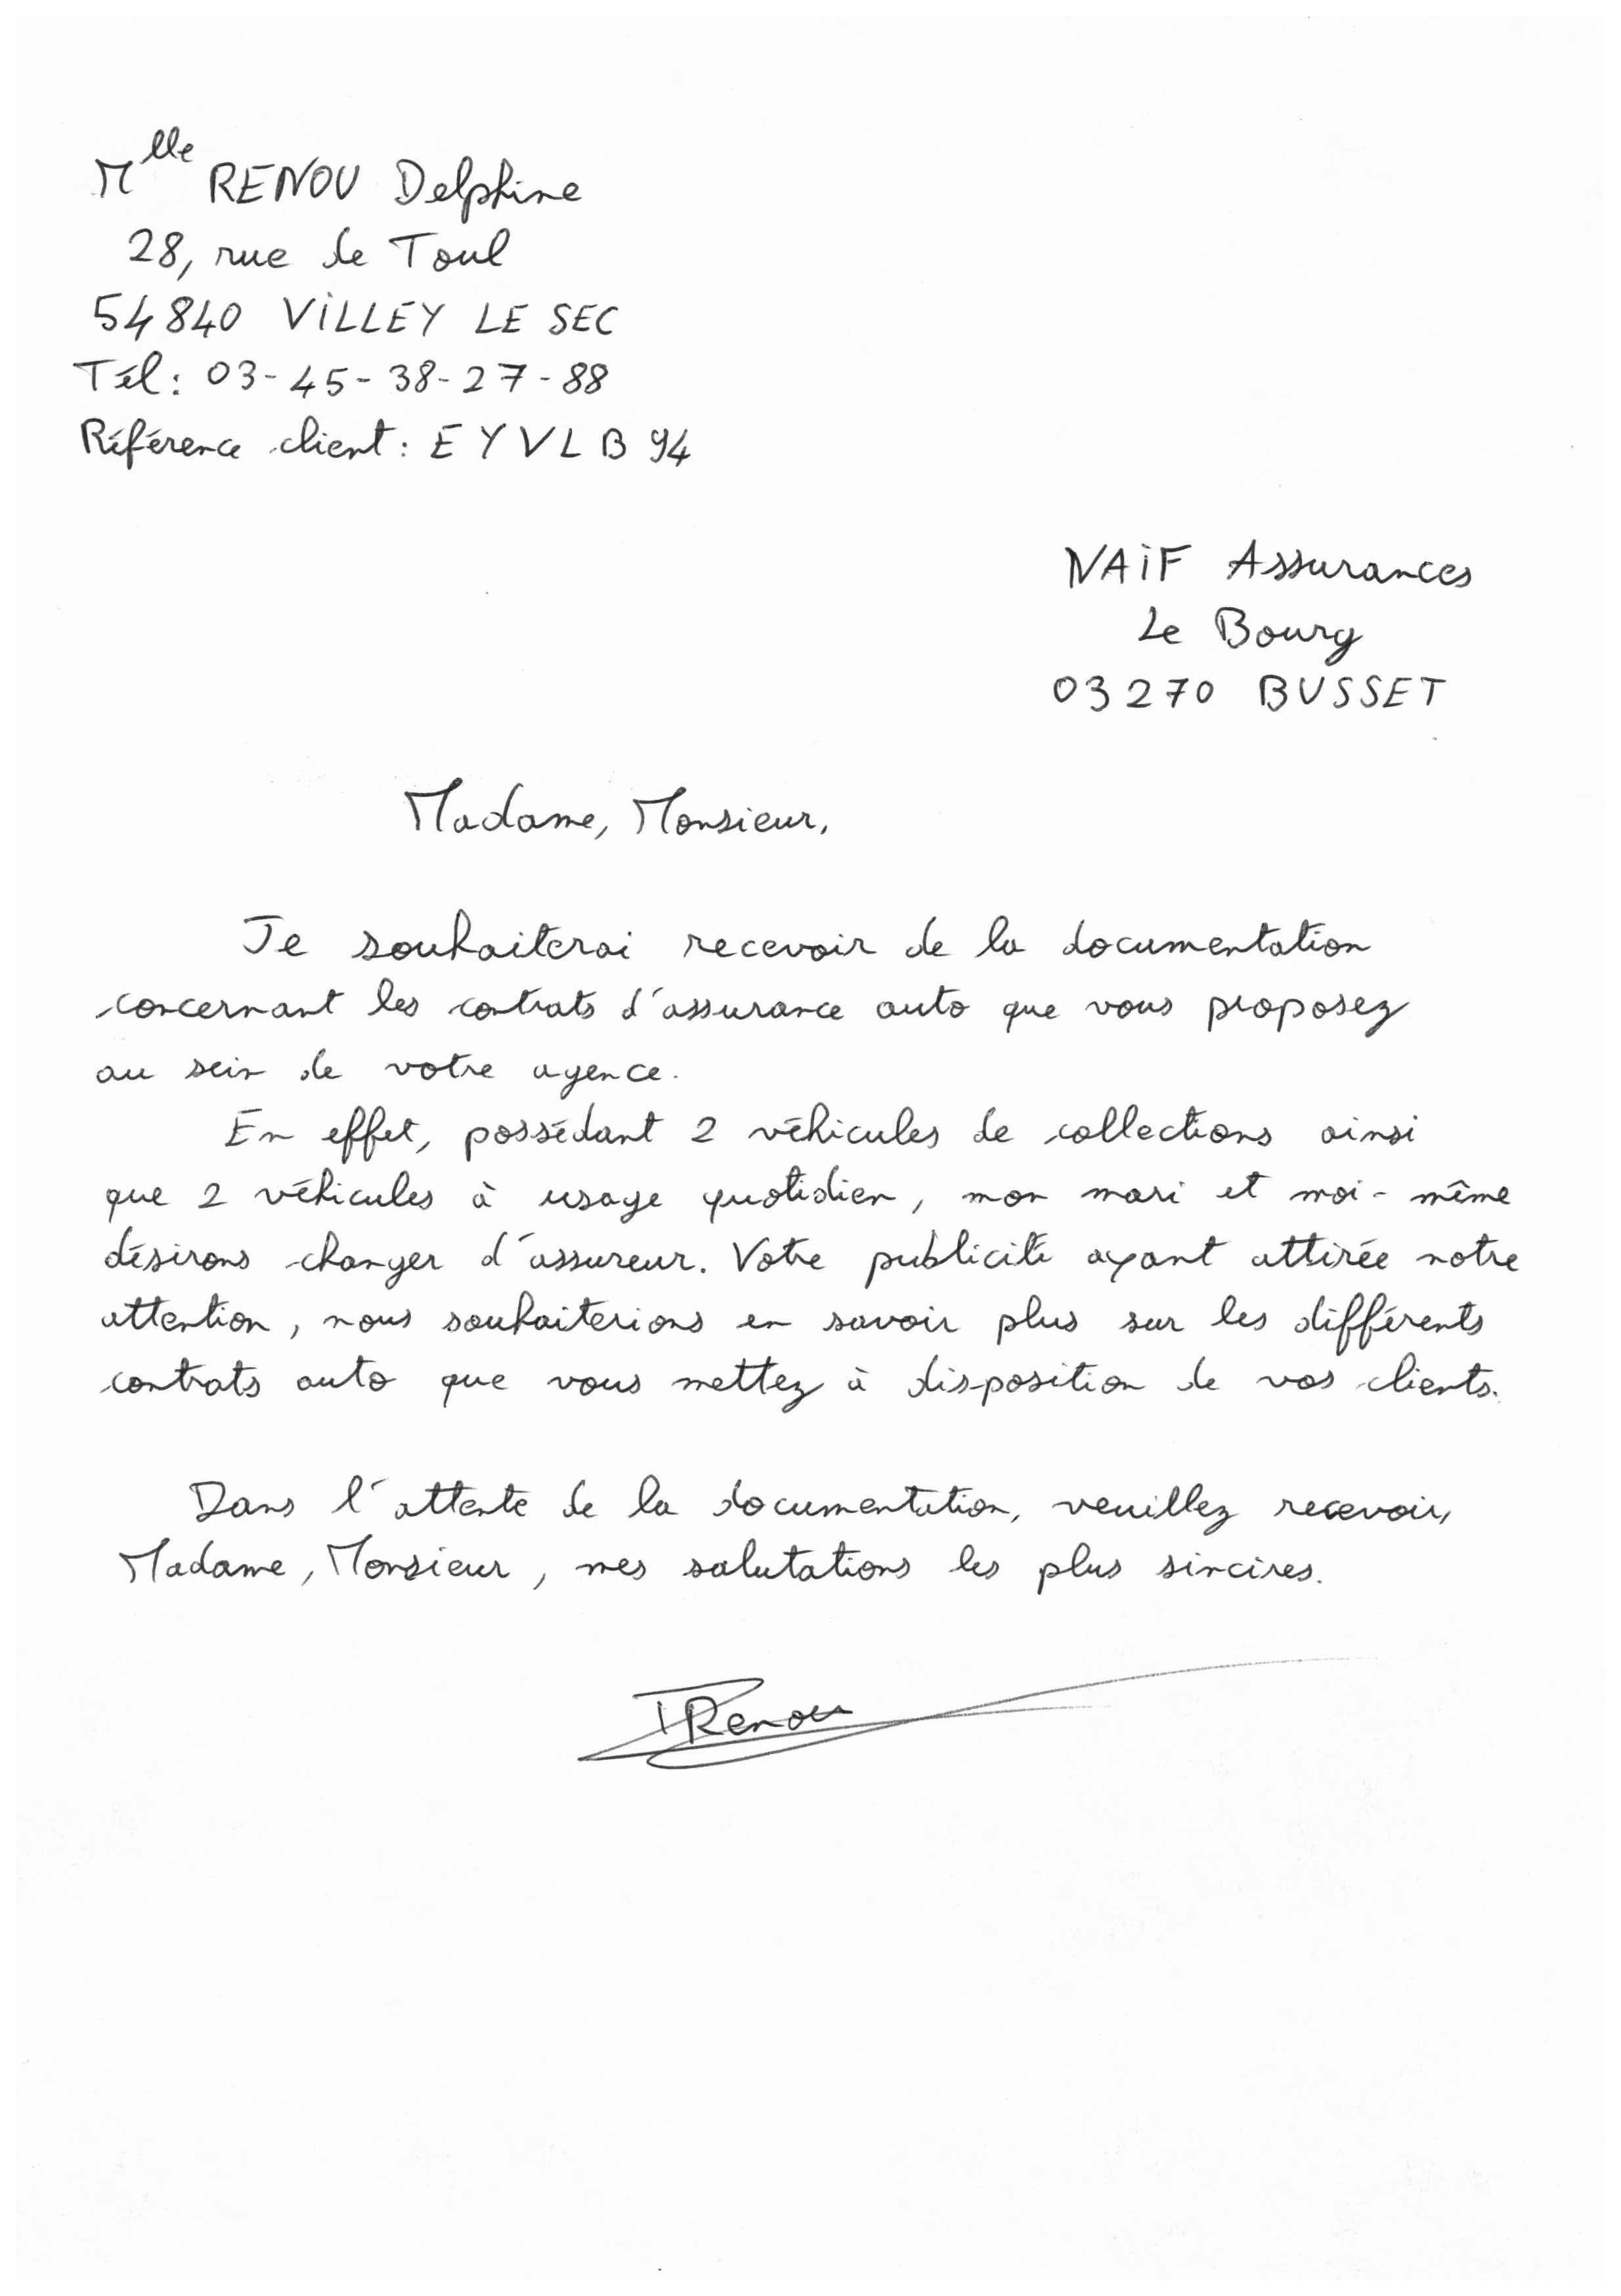 Mlle RENOU Delphine
28, rue de Toul
54840 VILLEY LE SEC
Tél: 03-45-38-27-88
Référence client: EYVLB94
NAIF Assurances
Le Bourg
03270 BUSSET
Madame, Monsieur,
Je souhaiterai recevoir de la documentation
concernant les contrats d'assurance auto que vous proposez
au sein de votre agence.
En effet, possédant 2 véhicules de collections ainsi
que 2 véhicules à usage quotidien, mon mari et moi-même
désirons changer d'assureur. Votre publicité ayant attirée notre
attention, nous souhaiterions en savoir plus sur les différents
contrats auto que vous mettez à disposition de vos clients.
Dans l'attente de la documentation, veuillez recevoir,
Madame, Monsieur, mes salutations les plus sincères.
Renou